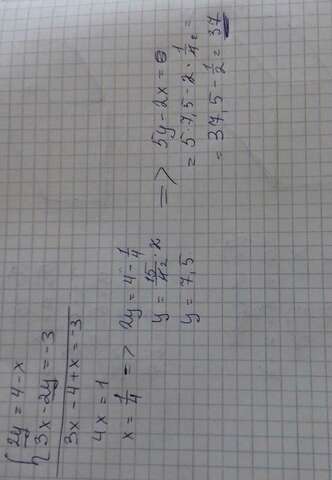 { 2y = 4 - x
3x - 2y = -3
3x - 4 + x = -3
4x = 1
x = 1/4 => 2y = 4 - 1/4
y = 15/4₂ · x
y = 7,5
=> 5y - 2x =
= 5·7,5 - 2 · 1/4₂ =
= 37,5 - 1/2 = 37